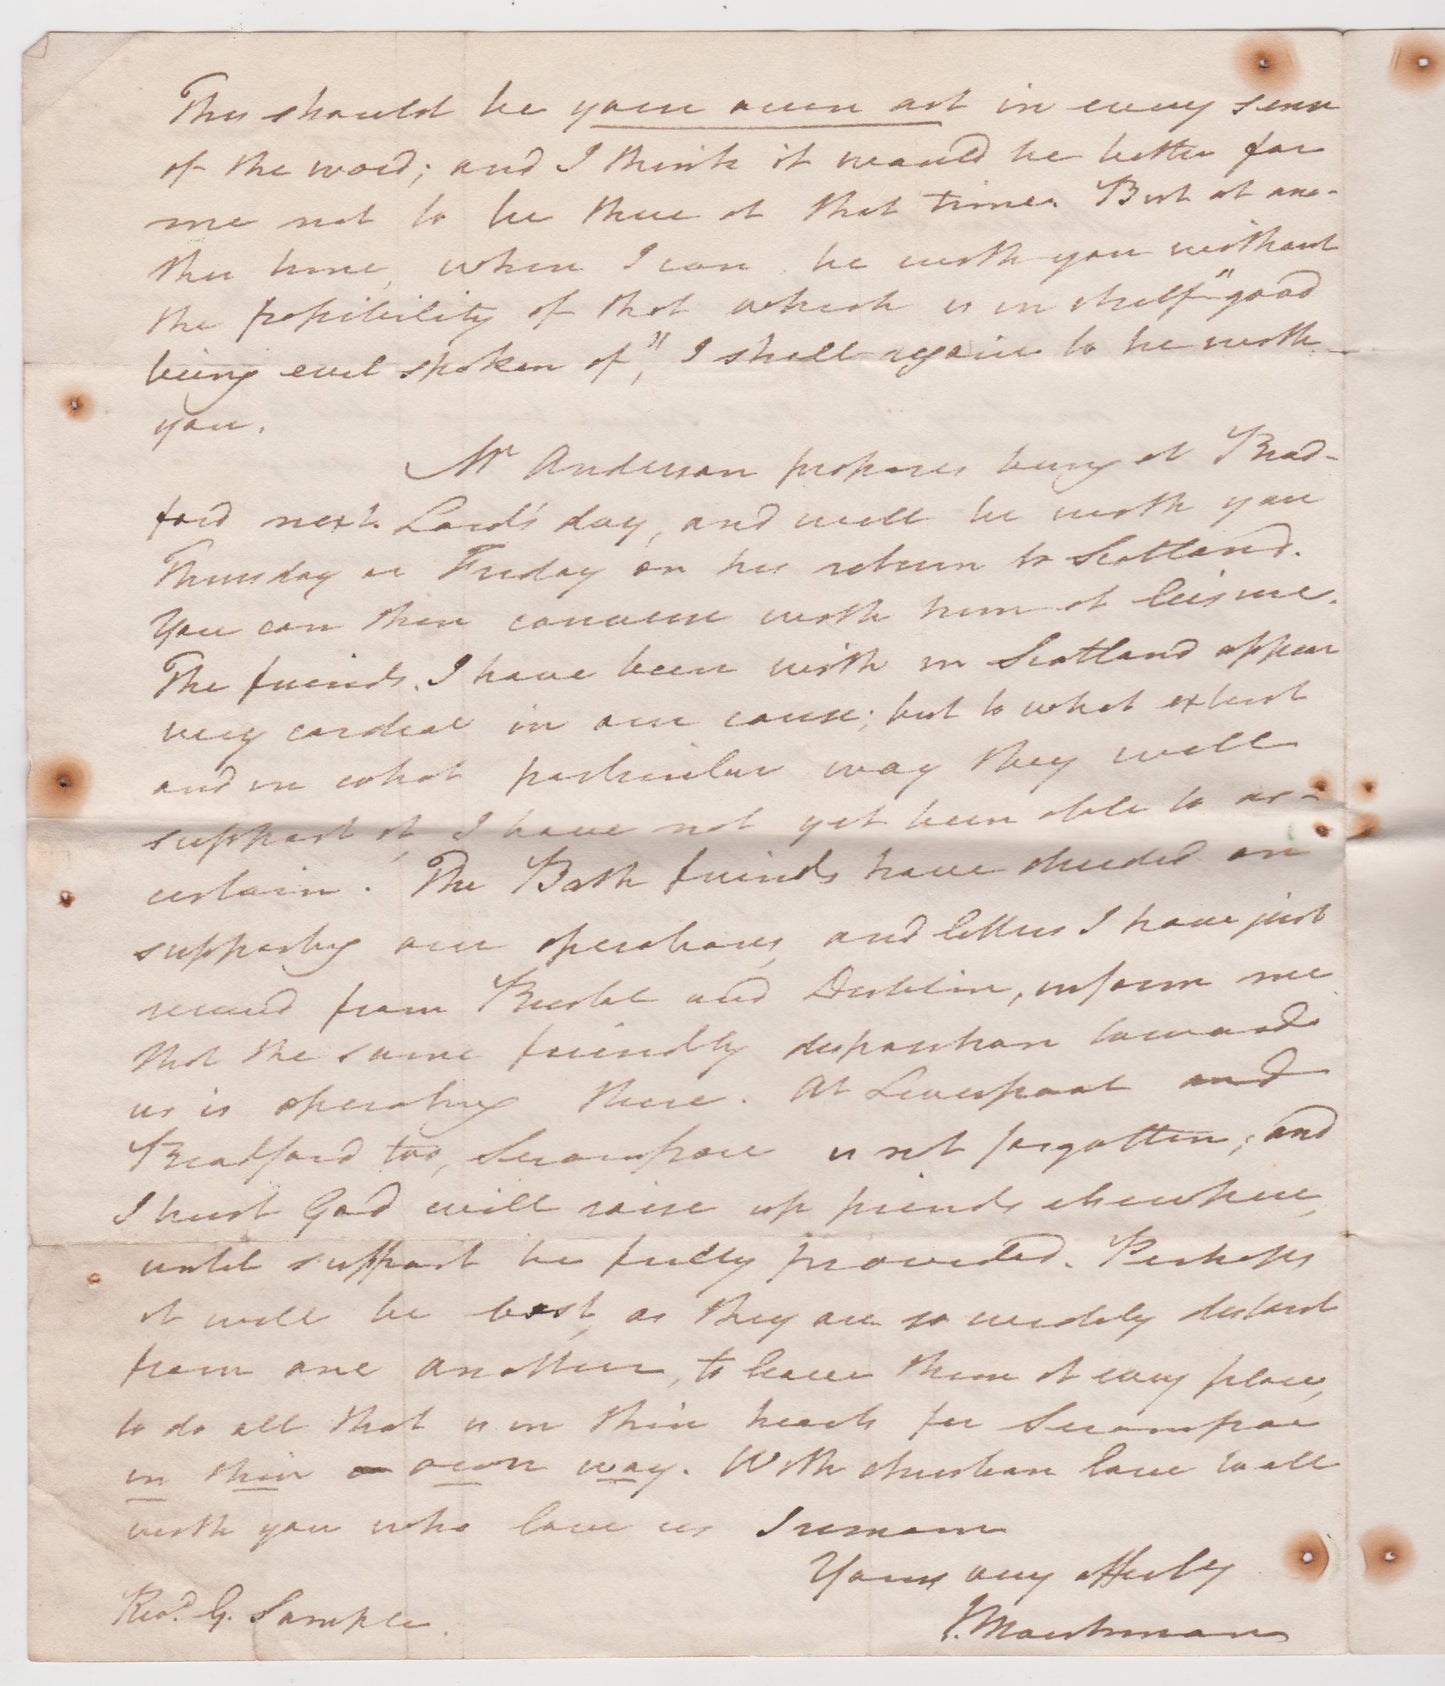 This should be your own act in every sense
of the word; and I think it would be better for
me not to be there at that time. But at ano-
ther time, when I can be with you without
the possibility of that which is in itself "good
being evil spoken of," I shall rejoice to be with
you.
Mr Anderson proposes being at Brad-
ford next Lord's day, and will be with you
Thursday or Friday on his return to Scotland.
You can then converse with him at leisure.
The friends I have been with in Scotland appear
very cordial in our cause; but to what extent
and in what particular way they will
support it, I have not yet been able to as-
certain. The Bath friends have decided on
supporting our operations, and letters I have just
received from Bristol and Dublin, inform me
that the same friendly disposition towards
us is operating there. At Liverpool and
Bradford too, Serampore is not forgotten; and
I trust God will raise up friends elsewhere,
until support be fully provided. Perhaps
it will be best, as they are so widely distant
from one another, to leave them at every place,
to do all that is in their hearts for Serampore
in their own way. With christian love to all
with you who love us I remain
Yours very affectly
J. Marshman
Revd. G. Sample.